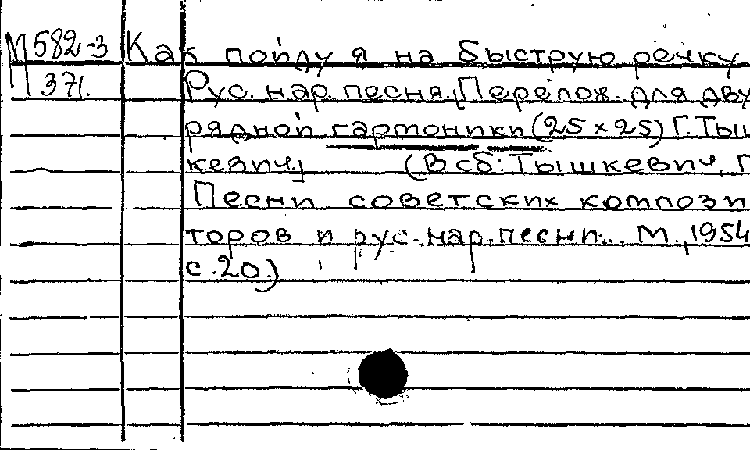 М582-3 Как пойду я на быструю речку
371. Рус. нар. песня. Перелож. для дву
рядной гармоники (25 x 25) Г. Тыш
кевич (В сб: Тышкевич, Г
Песни советских компози
торов и рус. нар. песни... М., 1954
с. 20.)